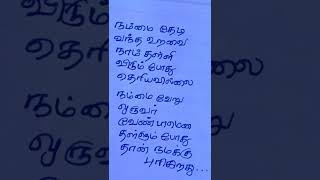 நம்மை தேடி
வந்த உறவை
நாம் தள்ளி
விடும் போது
தெரியவில்லை
நம்மை வேறு
ஒருவர்
வேண்டாமென
தள்ளும் போது
தான் நமக்கு
புரிகிறது...